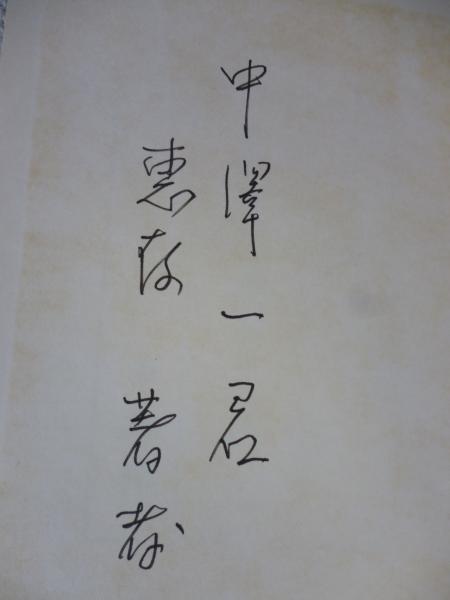 中澤一君
惠存 著者